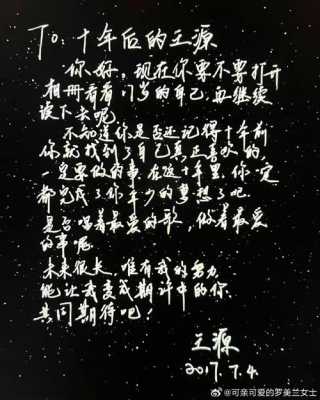 To：十年后的王源
你好。现在你要不要打开
相册看看17岁的自己，再继续
读下去呢
不知道你是否还记得十年前
你就找到了自己真正喜欢的，
一定要做的事，在这十年里，你一定
都完成了你年少的梦想了吧
是否唱着最爱的歌，做着最爱
的事呢。
未来很长，唯有我的努力
能让我变成期许中的你
共同期待吧！
王源
2017.7.4.
@可亲可爱的罗美兰女士